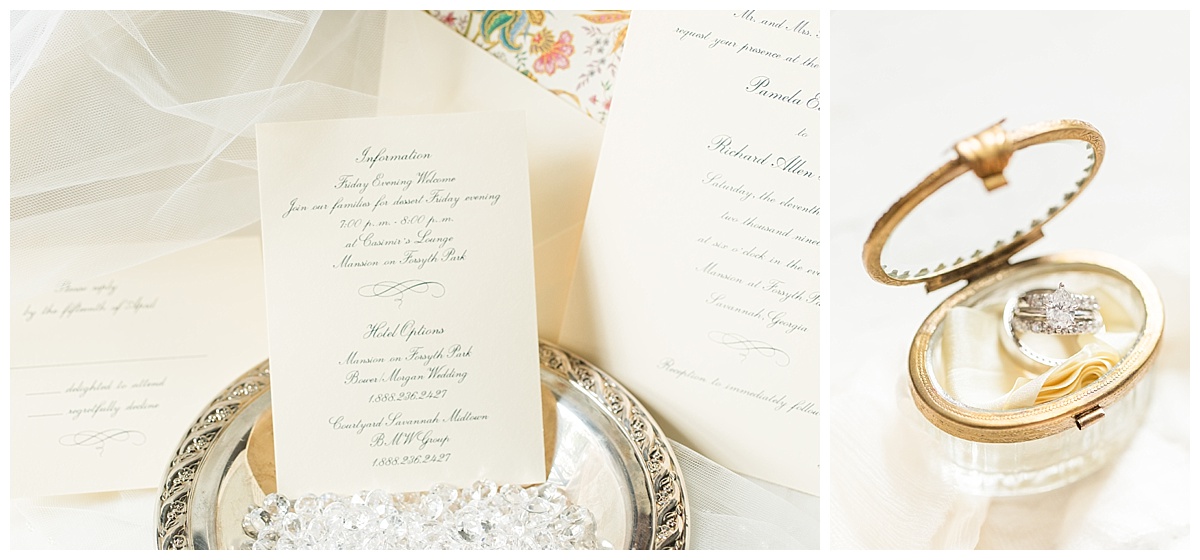 Please reply
by the fifteenth of April
delighted to attend
regretfully decline
Information
Friday Evening Welcome
Join our families for dessert Friday evening
7:00 p.m. - 8:00 p.m.
at Casimir's Lounge
Mansion on Forsyth Park
Hotel Options
Mansion on Forsyth Park
Bower/Morgan Wedding
1.888.236.2427
Courtyard Savannah Midtown
BMW Group
1.888.236.2427
Mr. and Mrs.
request your presence at the
Pamela E
to
Richard Allen
Saturday, the eleventh
two thousand nine
at six o'clock in the eve
Mansion at Forsyth
Savannah, Georgia
Reception to immediately follow